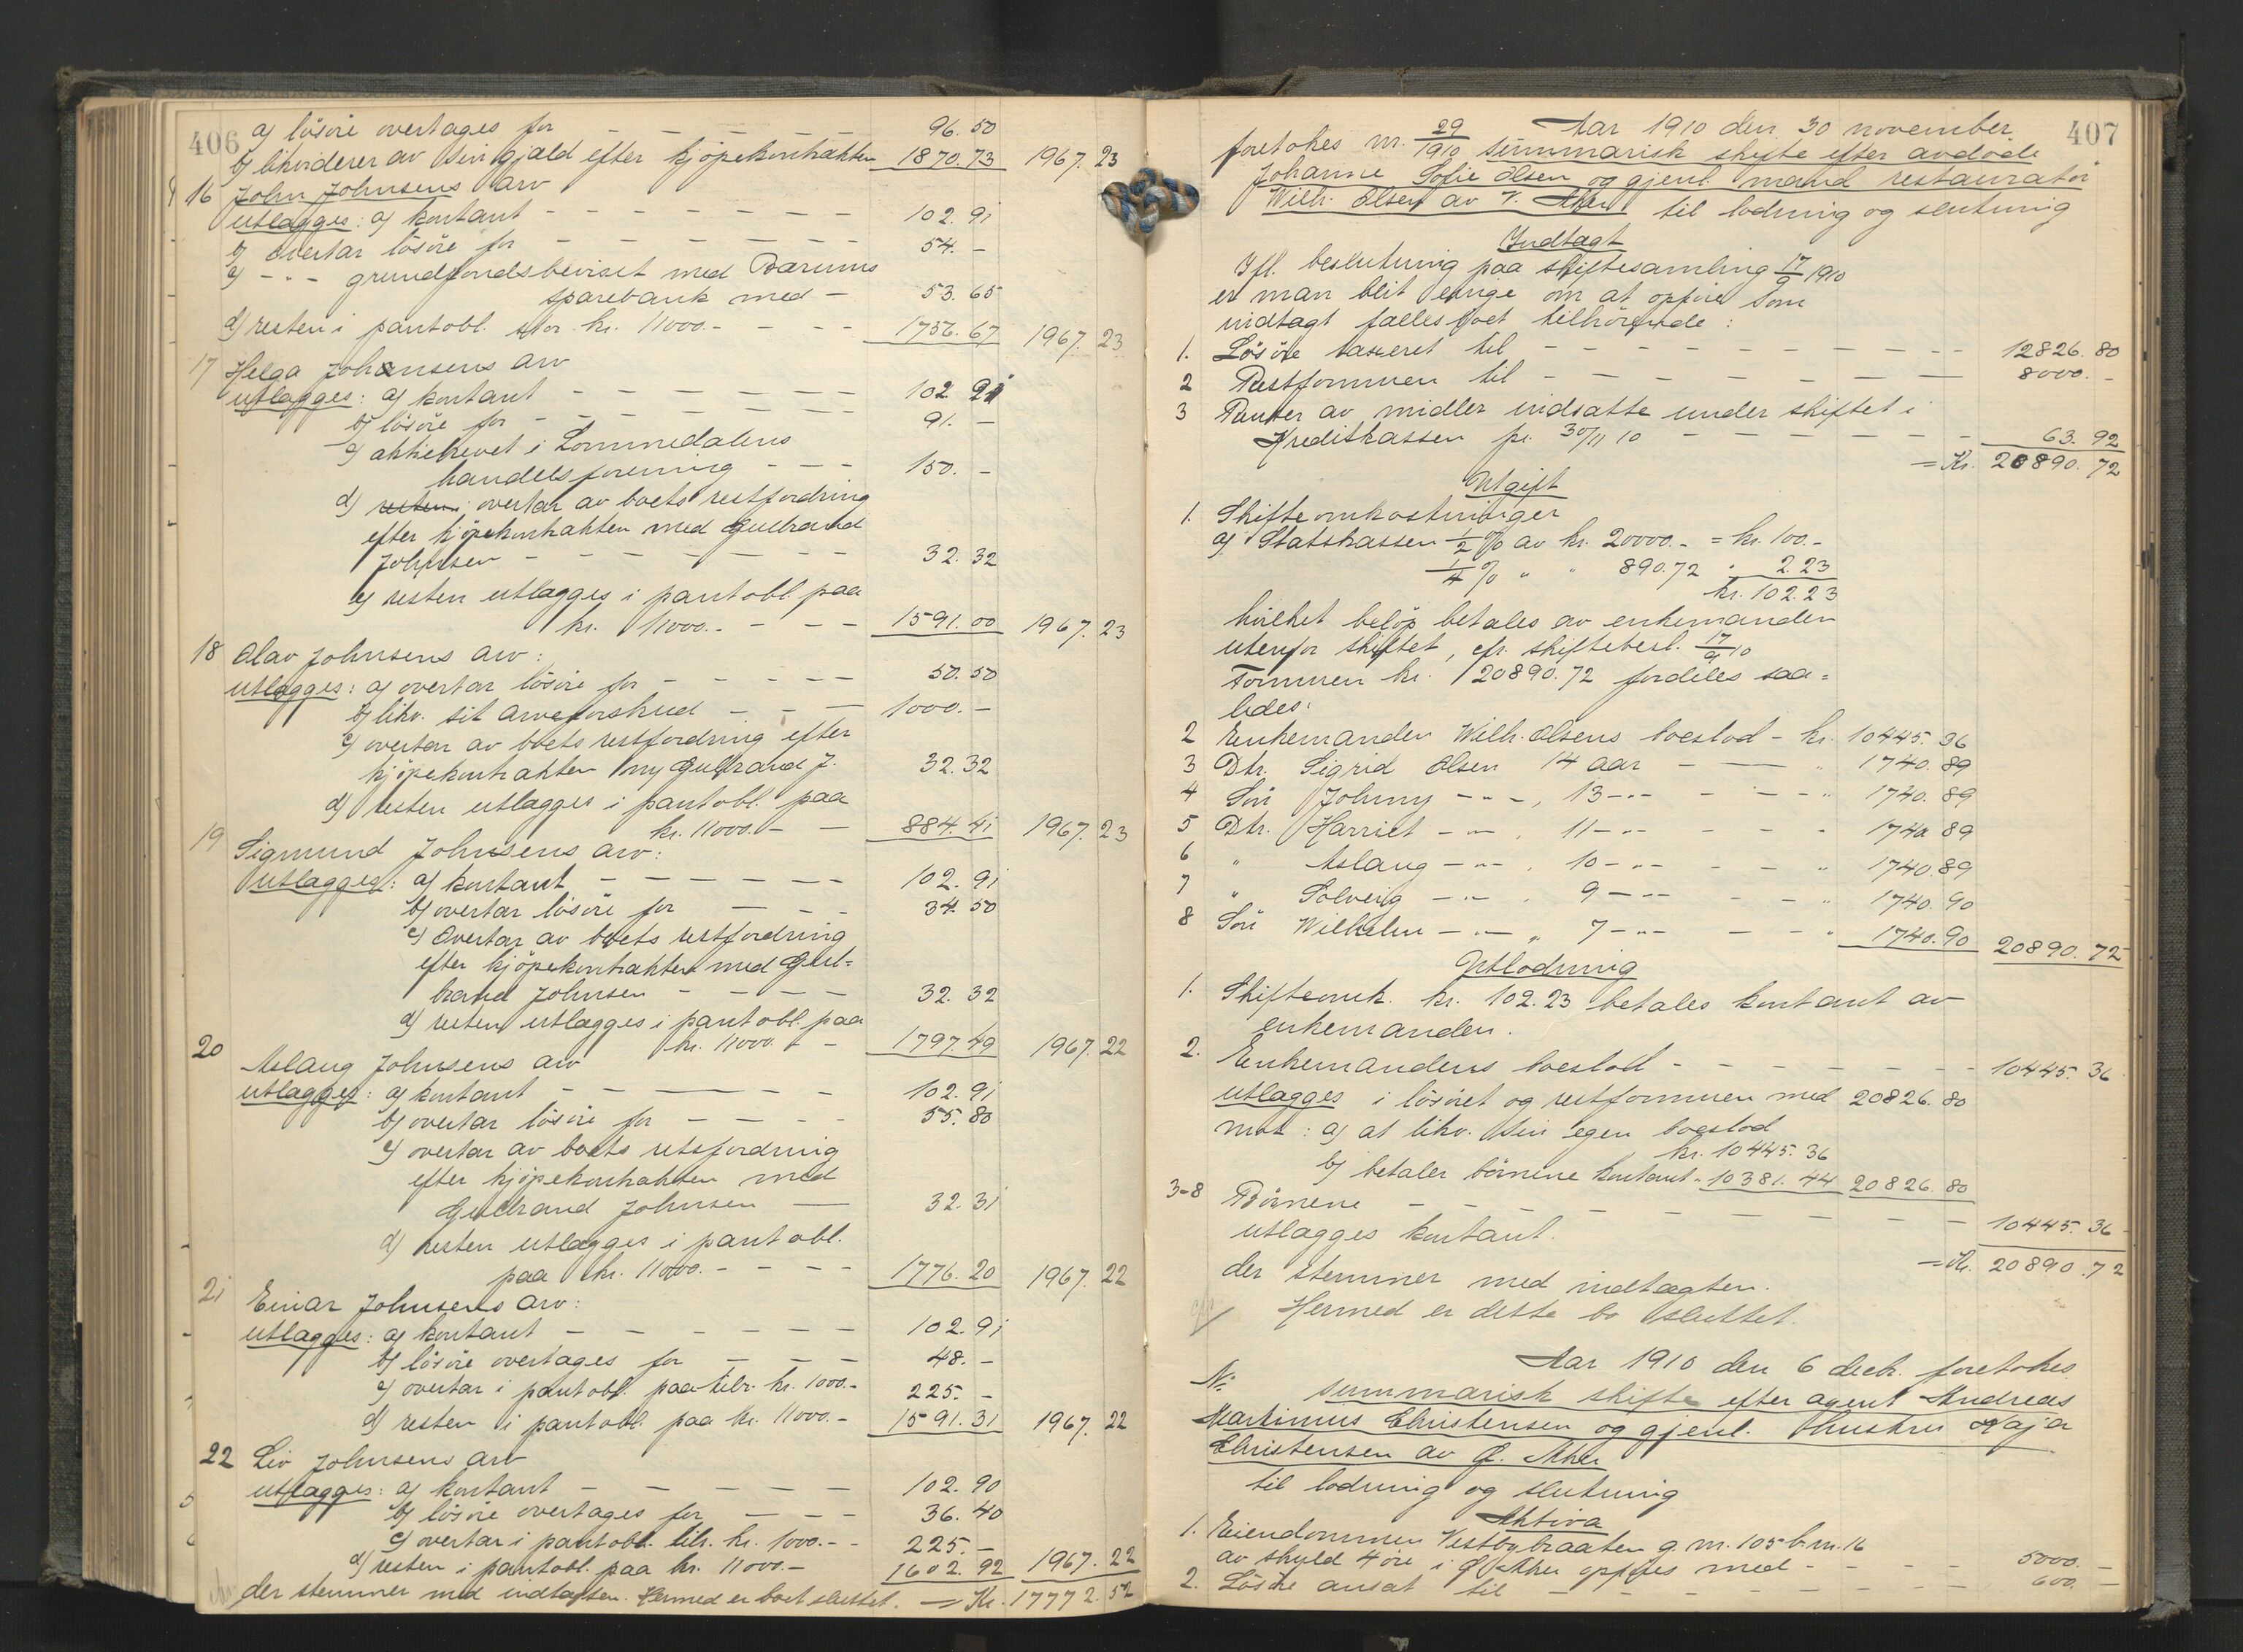 406
a) lösöre overtages for – – – – – 96.50
b) likviderer av sin gjæld efter kjöpekontrakten 1870.73 1967.23
16 John Johnsens arv
utlægges: a) kontant – – – – – – – 102.91
b) overtar lösöre for – – – – – – 54.–
c) –"– grundfondsbeviset med Bærums
sparebank med – 53.65
d) resten i pantobl. stor kr. 11000.– – – – 1756.67 1967.23
17 Helga Johansens arv
utlægges: a) kontant – – – – – – 102.91
b) lösöre for – – – – – – – 91.–
c) aktiebrevet i Lommedalens
handelsforening – – – 150.–
d) resten i overtar av boets restfordring
efter kjöpekontrakten med Gulbrand
Johnsen – – – – – – – 32.32
e) resten utlægges i pantobl. paa
kr. 11000.– – – – 1591.00 1967.23
18 Olav Johnsens arv:
utlægges: a) overtar lösöre for – – – – – 50.50
b) likv. sit arveforskud – – – 1000.–
c) overtar av boets restfordring efter
kjöpekontrakten m/ Gulbrand J. 32.32
d) resten utlægges i pantobl. paa
kr. 11000.– – 884.41 1967.23
19 Sigmund Johnsens arv:
utlægges: a) kontant – – – – – – 102.91
b) overtar lösöre for – – – 34.50
c) Overtar av boets restfordring
efter kjöpekontrakten med Gul=
brand Johnsen – – – – 32.32
d) resten utlægges i pantobl. paa
kr. 11000.– – 1797.49 1967.22
20 Aslaug Johnsens arv
utlægges: a) kontant – – – – – – 102.91
b) overtar lösöre for – – – – 55.80
c) overtar av boets restfordring
efter kjöpekontrakten med
Gulbrand Johnsen – 32.31
d) resten utlægges i pantobl.
paa kr. 11000.– – – – 1776.20 1967.22
21 Einar Johnsens arv:
utlægges: a) kontant – – – – – – 102.91
b) lösöre overtages for – – – 48.–
c) overtar i pantobl. paa tilr. kr. 1000.– 225.–
d) resten i pantobl. paa kr. 11000.– 1591.31 1967.22
22 Liv Johnsens arv
utlægges: a) kontant – – – – – 102.90
b) lösöre overtages for – – – 36.40
c) overtar i pantobl. tilr. kr. 1000.– – 225.–
d) resten i pantobl. paa kr. 11000.– 1602.92 1967.22
der stemmer med indtægten. Hermed er boet sluttet. = Kr. 17772.52
407
Aar 1910 den 30 november
foretokes nr. 29/1910 summarisk skifte efter avdöde
Johanne Sofie Olsen og gjenl. mand restauratör
Wilh. Olsen av V. Aker til lodning og slutning
Indtægt
Ifl. beslutning paa skiftesamling 17/9 1910
er man blit enige om at opföre som
indtægt fællesboet tilhörende:
1. Lösöre taxeret til – – – – – – – – 12826.80
2 Restformuen til – – – – – – – 8000.–
3 Renter av midler indsatte under skiftet i
Kreditkassen pr. 30/11 10 – – – – – – 63.92
= Kr. 20890.72
Utgift
1. Skifteomkostninger
a) Statskassen 1/2 % av kr. 20000.– = kr. 100.–
1/4 % " " 890.72 " 2.23
kr. 102.23
hvilket belöp betales av enkemanden
utenfor skiftet, cfr. skiftebesl. 17/9 10
Formuen kr. 20890.72 fordeles saa=
ledes:
2 Enkemanden Wilh. Olsens boeslod – kr. 10445.36
3 Dtr. Sigrid Olsen 14 aar – — " 1740.89
4 Sön Johnny –"–, 13 –"– – – – " 1740.89
5 Dtr. Harriet –"– , 11 –"– – – – 1740.89
6 " Aslaug –"– , 10 –"– – – " 1740.89
7 " Solveig –"– , 9 –"– – – " 1740.90
8 Sön Wilhelm –"– " 7 –"– – – " 1740.90 20890.72
Utlodning
1. Skifteomk. kr. 102.23 betales kontant av
enkemanden.
2. Enkemandens boeslod – – – – – – – 10445.36
utlægges i lösöret og restformuen med 20826.80
mot: a) at likv. sin egen boeslod
kr. 10445.36
b) betaler börnene kontant " 10381.44 20826.80
3-8 Börnene – – – – – – – – – 10445.36
utlægges kontant.
= Kr. 20890.72
der stemmer med indtægten.
Hermed er dette bo sluttet.
Aar 1910 den 6 decb. foretokes
No. summarisk skifte efter agent Andreas
Martinius Christensen og gjenl. hustru Kaja
Christensen av Ø. Aker
til lodning og slutning
Aktiva
1. Eiendommen Vestbybraaten g.nr. 105 b.nr. 16
av skyld 4 öre i Ø. Aker opföres med – – – – 5000.–
2. Lösöre ansat til – – – – – – – 600.–